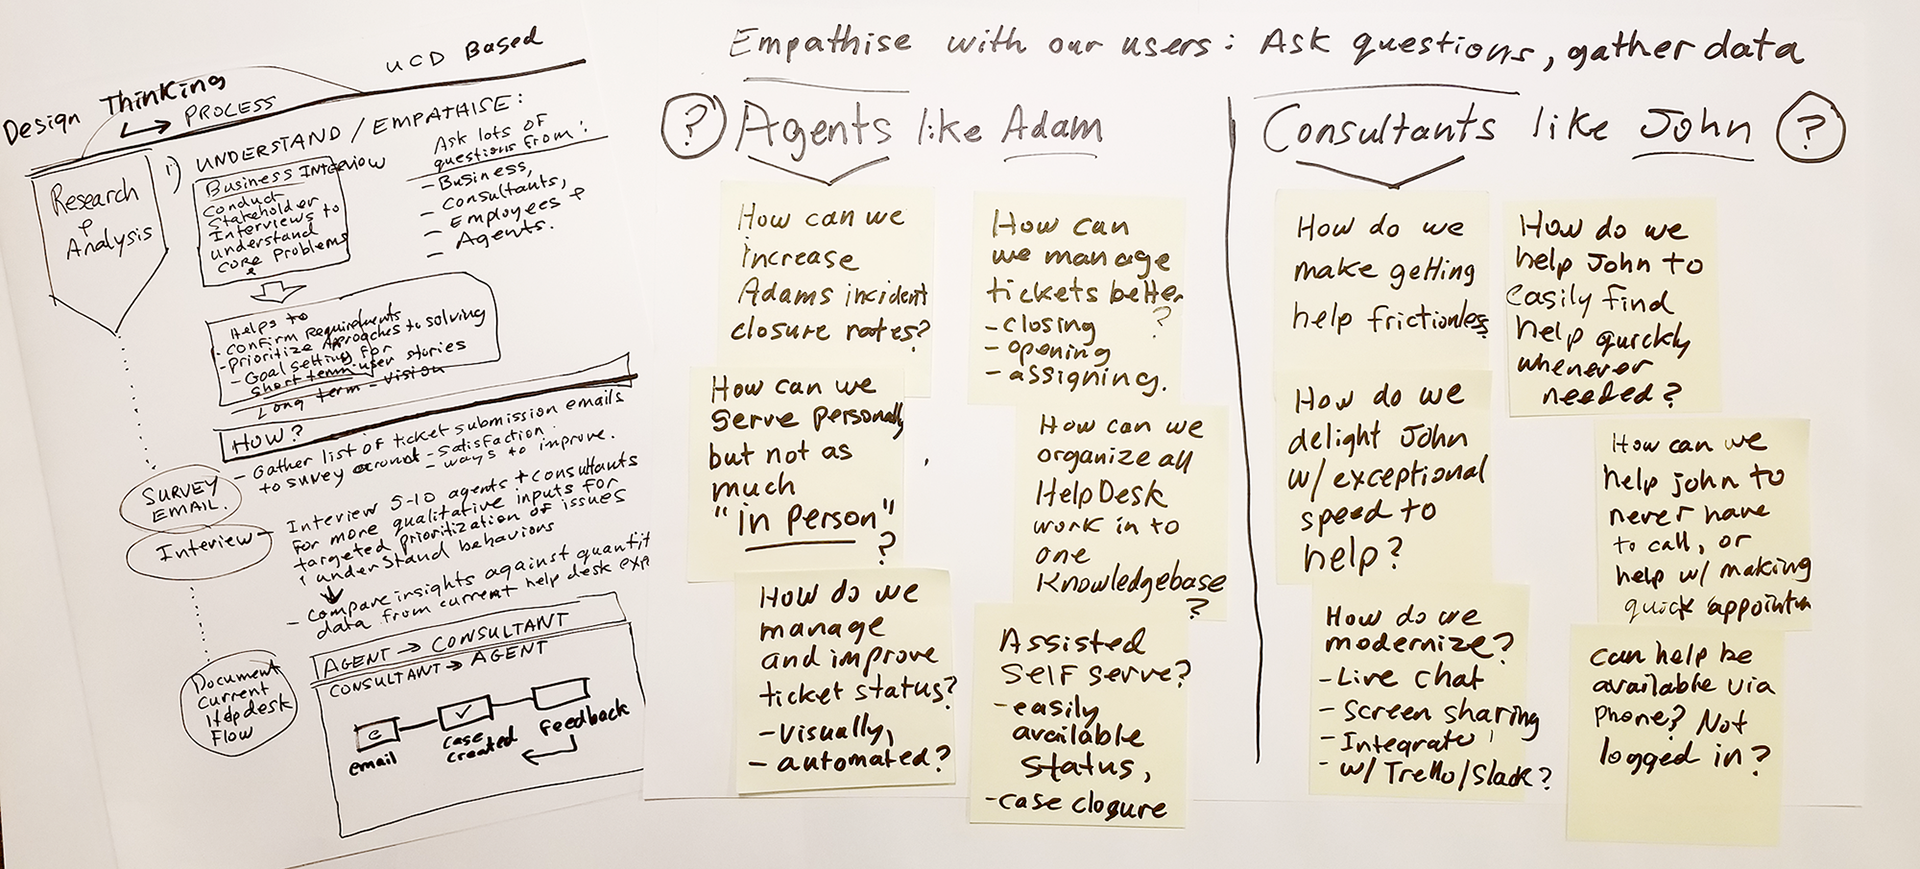 Design Thinking
PROCESS
UCD Based
Research
&
Analysis
1) UNDERSTAND / EMPATHISE:
Business Interview
Conduct
Stakeholder
Interviews to
understand
core problems
Ask lots of
questions from:
- Business,
- Consultants,
- Employees &
- Agents.
Helps to
- confirm Requirements
- Prioritize Approaches to solving
- Goal setting for
short term-user stories
Long term - Vision
HOW?
SURVEY
EMAIL.
- Gather list of ticket submission emails
to survey around - satisfaction.
- ways to improve.
Interview
- Interview 5-10 agents + consultants
For more qualitative inputs for
targeted prioritization of issues
understand behaviors
- Compare insights against quantit
data from current help desk exp
Document
Current
Helpdesk
Flow
AGENT → CONSULTANT
CONSULTANT → AGENT
email
case
created
Feedback
Empathise with our users: Ask questions, gather data
? Agents like Adam
How can we
increase
Adams incident
closure rates?
How can
we manage
tickets better
?
- closing
- opening
- assigning.
How can we
serve personally
but not as
much
"in person"
?
How can we
organize all
HelpDesk
work in to
one
Knowledgebase
?
How do we
manage
and improve
ticket status?
- visually,
- automated?
Assisted
Self serve?
- easily
available
status,
- case closure
Consultants like John ?
How do we
make getting
help frictionless
How do we
help John to
easily find
help quickly
whenever
needed?
How do we
delight John
w/ exceptional
speed to
help?
How can we
help john to
never have
to call, or
help w/ making
quick appointm
How do we
modernize?
- Live chat
- Screen sharing
- Integrate
- w/ Trello/Slack?
can help be
available via
phone? Not
logged in?